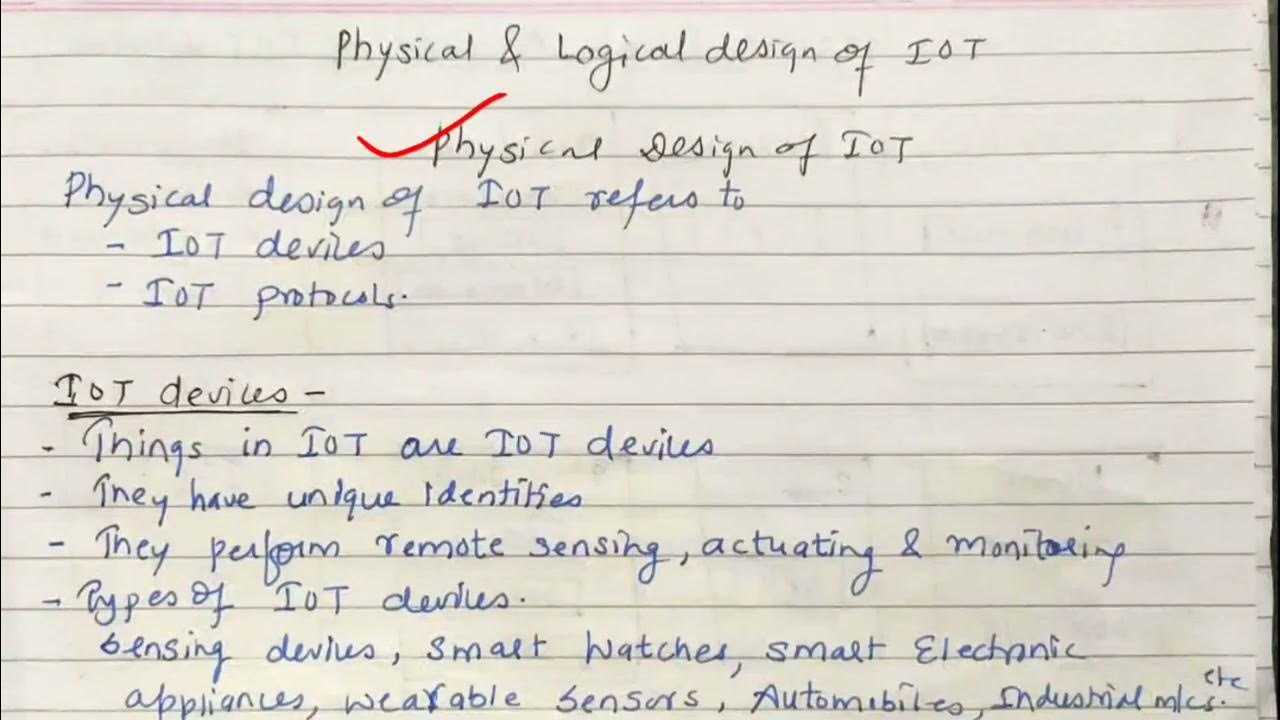 Physical & Logical design of IOT
Physical Design of IOT
Physical design of IOT refers to
- IOT devices
- IOT protocols.
IOT devices -
- Things in IOT are IOT devices
- They have unique identities
- They perform remote sensing, actuating & monitoring
- Types of IOT devices.
Sensing devices, smart watches, smart Electronic
appliances, wearable sensors, Automobiles, Industrial m/cs. etc